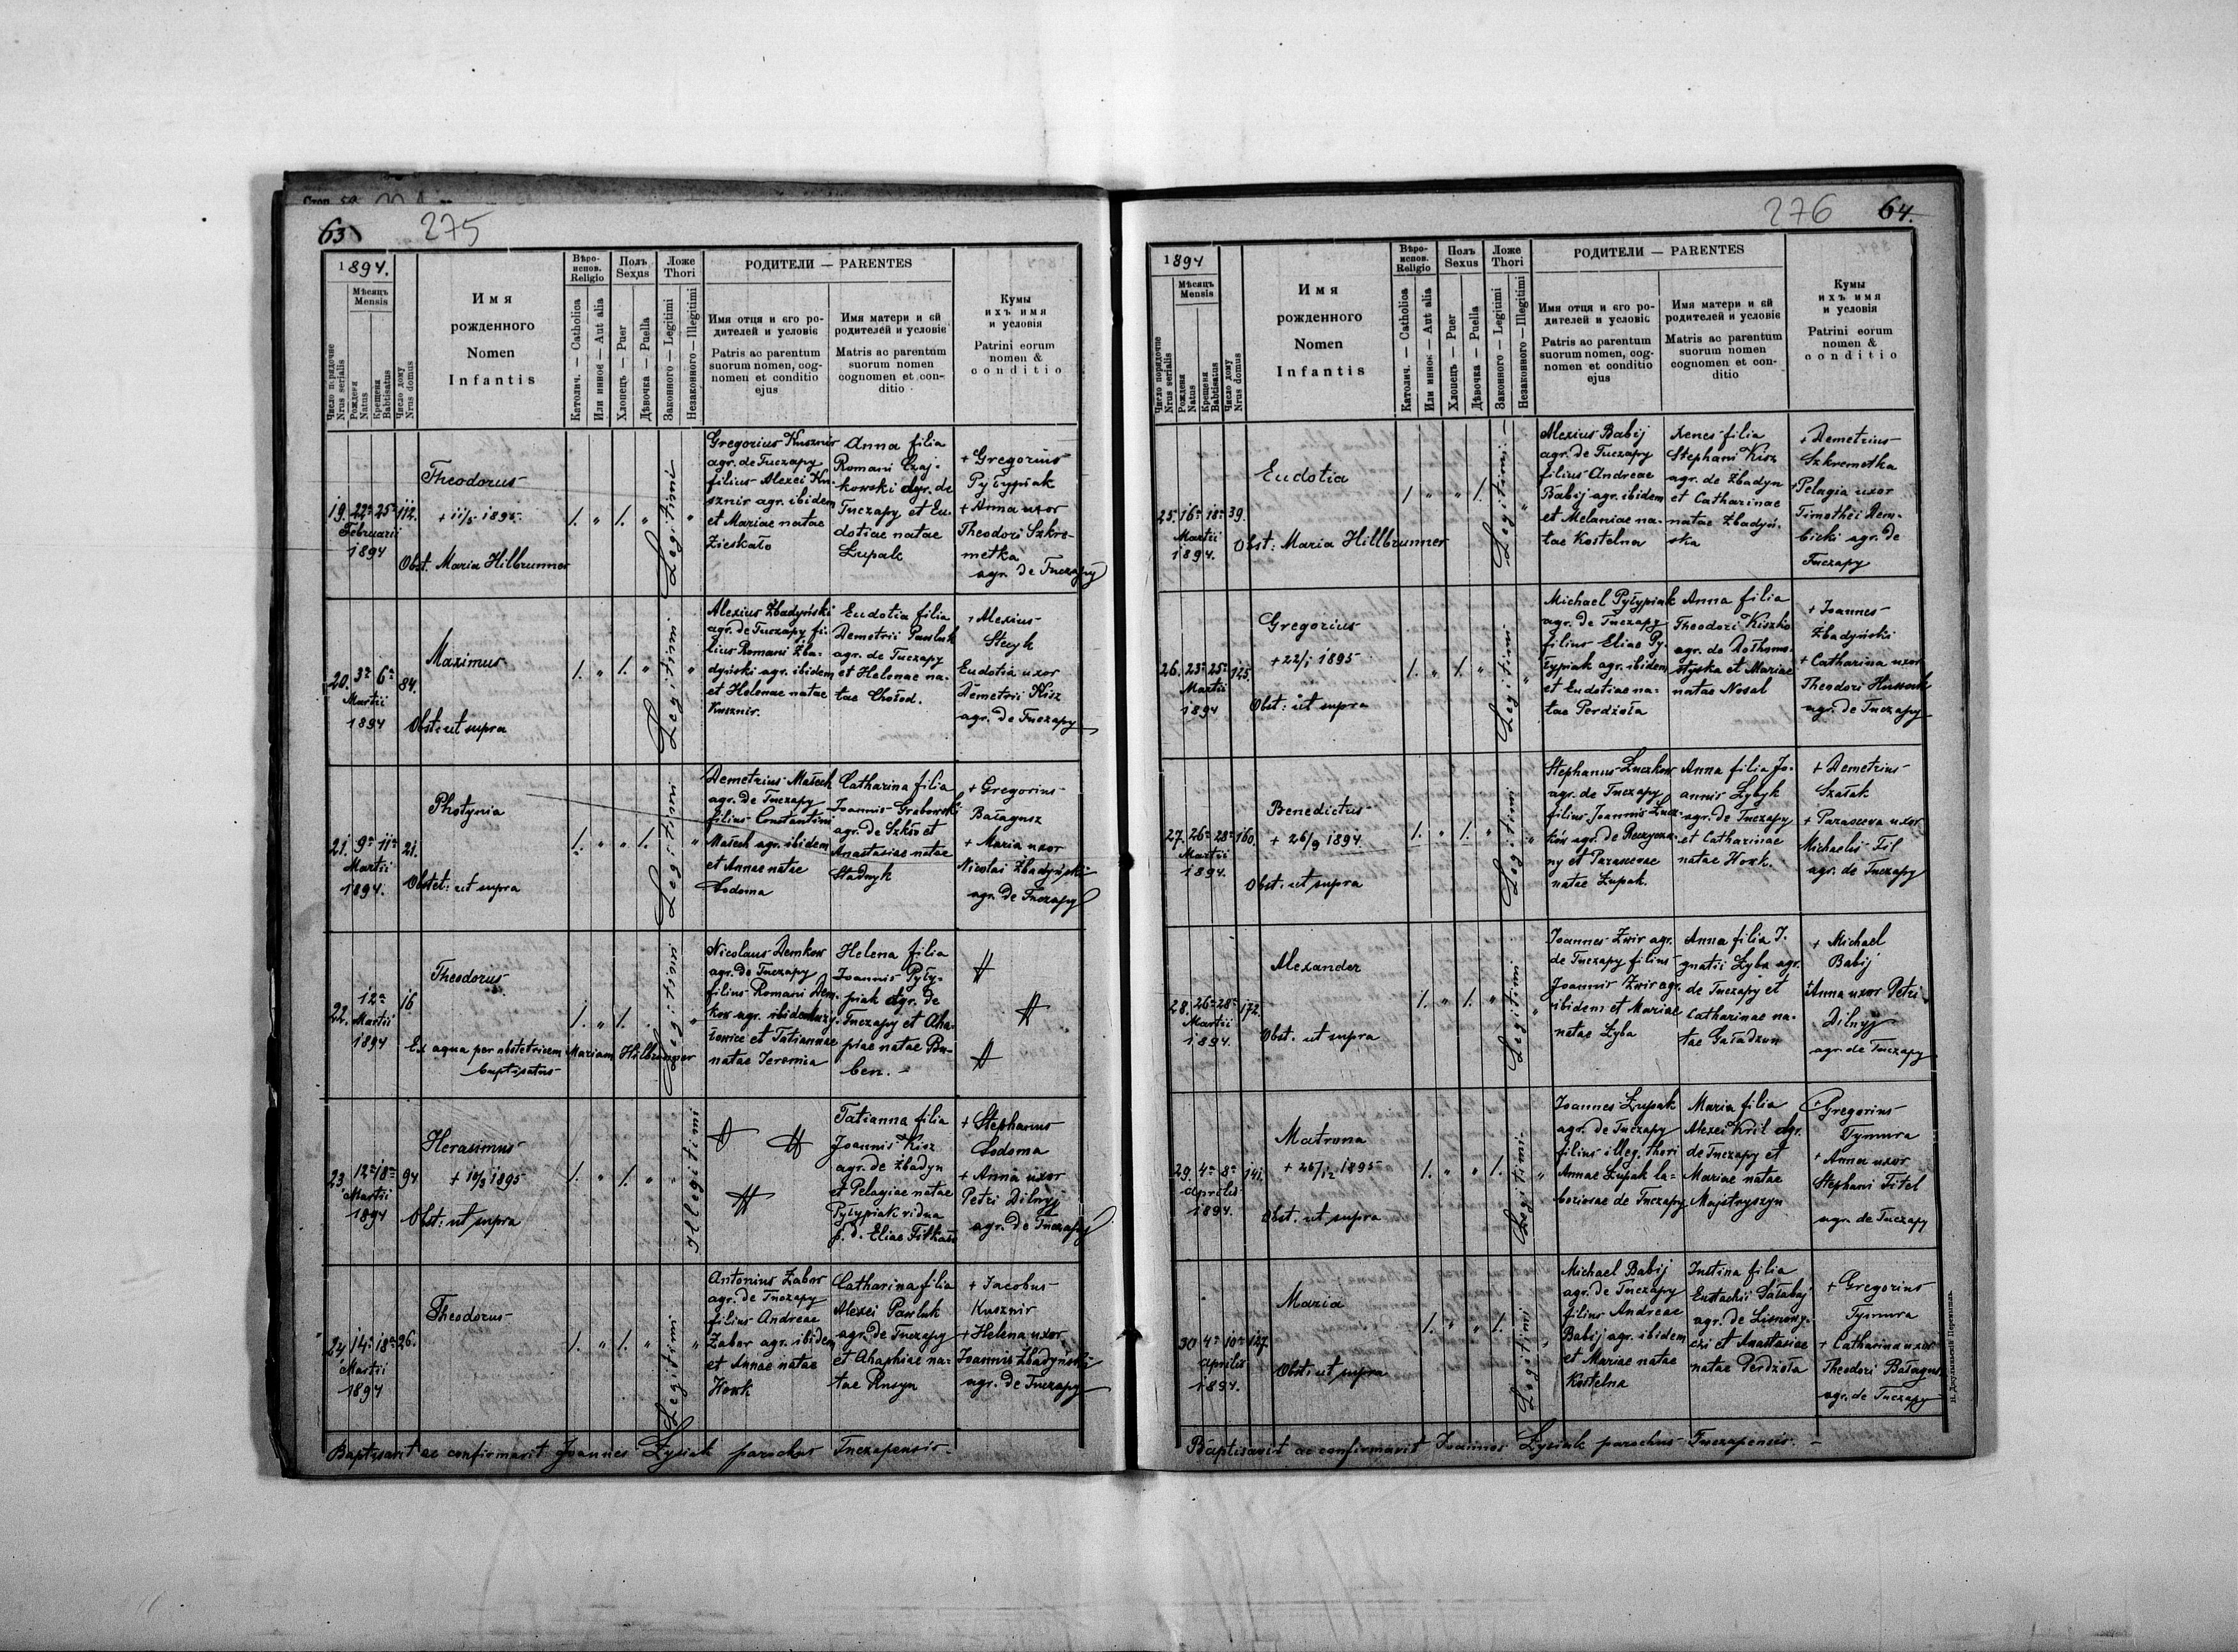 63
275
1894.
Мѣсяцъ
Mensis
Число порядочне
Nrus serialis
Рожденя
Natus
Крещеня
Babtisatus
Число дому
Nrus domus
Имя
рожденного
Nomen
Infantis
Вѣро-
испов.
Religio
Католич. — Catholica
Или инноє — Aut alia
Полъ
Sexus
Хлопець — Puer
Дѣвочка — Puella
Ложе
Thori
Законного — Legitimi
Незаконного — Illegitimi
РОДИТЕЛИ — PARENTES
Имя отця и єго ро-
дителей и условіє
Patris ac parentum
suorum nomen, cog-
nomen et conditio
ejus
Имя матери и єй
родителей и условіє
Matris ac parentum
suorum nomen
cognomen et con-
ditio
Кумы
ихъ имя
и условія
Patrini eorum
nomen &
conditio
19. 22a 25a 112.
Februarii
1894
Theodorus
+ 11/5 1895
Obst. Maria Hilbrunner
1. " 1. "
Legitimi "
Gregorius Kusznir
agr. de Tuczapy
filius Alexei Ku-
sznir agr. ibidem
et Mariae natae
Zieskało
Anna filia
Romani Czaj-
kowski agr. de
Tuczapy et Eu-
dotiae natae
Łupak
+ Gregorius
Pyłypiak
+ Anna uxor
Theodori Szkro-
metka
agr. de Tuczapy
20. 3a 6a 84.
Martii
1894
Maximus
Obst: ut supra
1. " 1. "
Legitimi "
Alexius Żbadyński
agr. de Tuczapy fi-
lius Romani Żba-
dyński agr. ibidem
et Helenae natae
Kusznir.
Eudotia filia
Demetrii Pawluk
agr. de Tuczapy
et Helenae na-
tae Chołod.
+ Alexius
Stecyk
Eudotia uxor
Demetrii Kisz
agr. de Tuczapy
21. 9a 11a 21.
Martii
1894.
Photynia
Obstet: ut supra
1. " " 1.
Legitimi "
Demetrius Małech
agr. de Tuczapy
filius Constantini
Małech agr. ibidem
et Annae natae
Sodoma
Catharina filia
Joannis Grabowski
agr. de Szkło et
Anastasiae natae
Stadnyk
+ Gregorius
Bałagusz
+ Maria uxor
Nicolai Żbadyński
agr. de Tuczapy
22. 12a 16
Martii
1894
Theodorus
Ex aqua per obstetricem Mariam Hilbrunner
baptisatus
1. " 1.
Legitimi "
Nicolaus Demkow
agr. de Tuczapy
filius Romani Dem-
kow agr. ibidem
et Tatiannae
natae Jeremia
Helena filia
Joannis Pyły-
piak agr. de
Tuczapy et Aha-
piae natae Bu-
ben. -
23 12a 18a 94
Martii
1894
Herasimus
+ 10/3 1895
Obst: ut supra
1. " 1. " "
Illegitimi
Tatianna filia
Joannis Kisz
agr. de Żbadyn
et Pelagiae natae
Pyłypiak vidua
p. d. Eliae
+ Stephanus
Sodoma
+ Anna uxor
Petri Dilnyj
agr. de Tuczapy
24 14a 18a 26.
Martii
1894
Theodorus
1. " 1. "
Legitimi "
Antonius Zabor
agr. de Tuczapy
filius Andreae
Zabor agr. ibidem
et Annae natae
Howk
Catharina filia
Alexei Pawluk
agr. de Tuczapy
et Ahaphiae na-
tae Rusyn
+ Jacobus
Kusznir
+ Helena uxor
Joannis Żbadyński
agr. de Tuczapy
Baptisavit ac confirmavit Joannes Łysiak parochus Tuczapensis
276
64.
1894
Мѣсяцъ
Mensis
Число порядочне
Nrus serialis
Рожденя
Natus
Крещеня
Babtisatus
Число дому
Nrus domus
Имя
рожденного
Nomen
Infantis
Вѣро-
испов.
Religio
Католич. — Catholica
Или инноє — Aut alia
Полъ
Sexus
Хлопець — Puer
Дѣвочка — Puella
Ложе
Thori
Законного — Legitimi
Незаконного — Illegitimi
РОДИТЕЛИ — PARENTES
Имя отця и єго ро-
дителей и условіє
Patris ac parentum
suorum nomen, cog-
nomen et conditio
ejus
Имя матери и єй
родителей и условіє
Matris ac parentum
suorum nomen
cognomen et con-
ditio
Кумы
ихъ имя
и условія
Patrini eorum
nomen &
conditio
25. 16a 18a 39.
Martii
1894.
Eudotia
Obst: Maria Hillbrunner
1 " " 1.
Legitimi "
Alexius Babij
agr. de Tuczapy
filius Andreae
Babij agr. ibidem
et Melaniae na-
tae Kostelna
Xenes filia
Stephani Kisz
agr. de Żbadyn
et Catharinae
natae Żbadyń-
ska
+ Demetrius
Szkremetka
+ Pelagia uxor
Timothei Dem-
bicki agr. de
Tuczapy
26. 23a 25a 125.
Martii
1894
Gregorius
+ 22/1 1895
Obst: ut supra
1. " 1. "
Legitimi "
Michael Pyłypiak
agr. de Tuczapy
filius Eliae Py-
łypiak agr. ibidem
et Eudotiae na-
tae Perdzoła
Anna filia
Theodori Kiszko
agr. de Dołhomo-
styska et Mariae
natae Nosal
+ Joannes
Żbadyński
+ Catharina uxor
Theodori
agr. de Tuczapy
27. 26a 28a 160.
Martii
1894.
Benedictus
+ 26/9 1894.
Obst: ut supra
1. " 1. "
Legitimi "
Stephanus Łuczkow
agr. de Tuczapy
filius Joannis Łucz-
ków agr. de
et Parascevae
natae Łupak.
Anna filia Jo-
annis Łybyk
agr. de Tuczapy
et Catharinae
natae Howk.
+ Demetrius
Szałak
+ Parasceva uxor
Michaelis Fil
agr. de Tuczapy
28. 26a 28a 172.
Martii
1894.
Alexander
Obst. ut supra
1. " 1. "
Legitimi "
Joannes Zwir agr.
de Tuczapy filius
Joannis Zwir agr.
ibidem et Mariae
natae Łyba
Anna filia J-
gnatii Łyba agr.
de Tuczapy et
Catharinae na-
tae Gaładzun
+ Michael
Babij
+ Anna uxor Petri
Dilnyj
agr. de Tuczapy
29. 4a 8a 141.
Aprilis
1894.
Matrona
+ 26/12 1895
Obst. ut supra
1. " " 1.
Legitimi "
Joannes Łupak
agr. de Tuczapy
filius illeg. thori
Annae Łupak la-
boriosae de Tuczapy
Maria filia
Alexei Kril agr.
de Tuczapy et
Mariae natae
Majstryszyn
+ Gregorius
Tymura
+ Anna uxor
Stephani Fitel
agr. de Tuczapy
30 4a 10a 127.
Aprilis
1894.
Maria
Obst: ut supra
1. " " 1.
Legitimi "
Michael Babij
agr. de Tuczapy
filius Andreae
Babij agr. ibidem
et Mariae natae
Kostelna
Justina filia
Eustachii Pałabaj
agr. de
et Anastasiae
natae Perdzoła
+ Gregorius
Tymura
+ Catharina uxor
Theodori Bałagusz
agr. de Tuczapy
Baptisavit ac confirmavit Joannes Łysiak parochus Tuczapensis. -